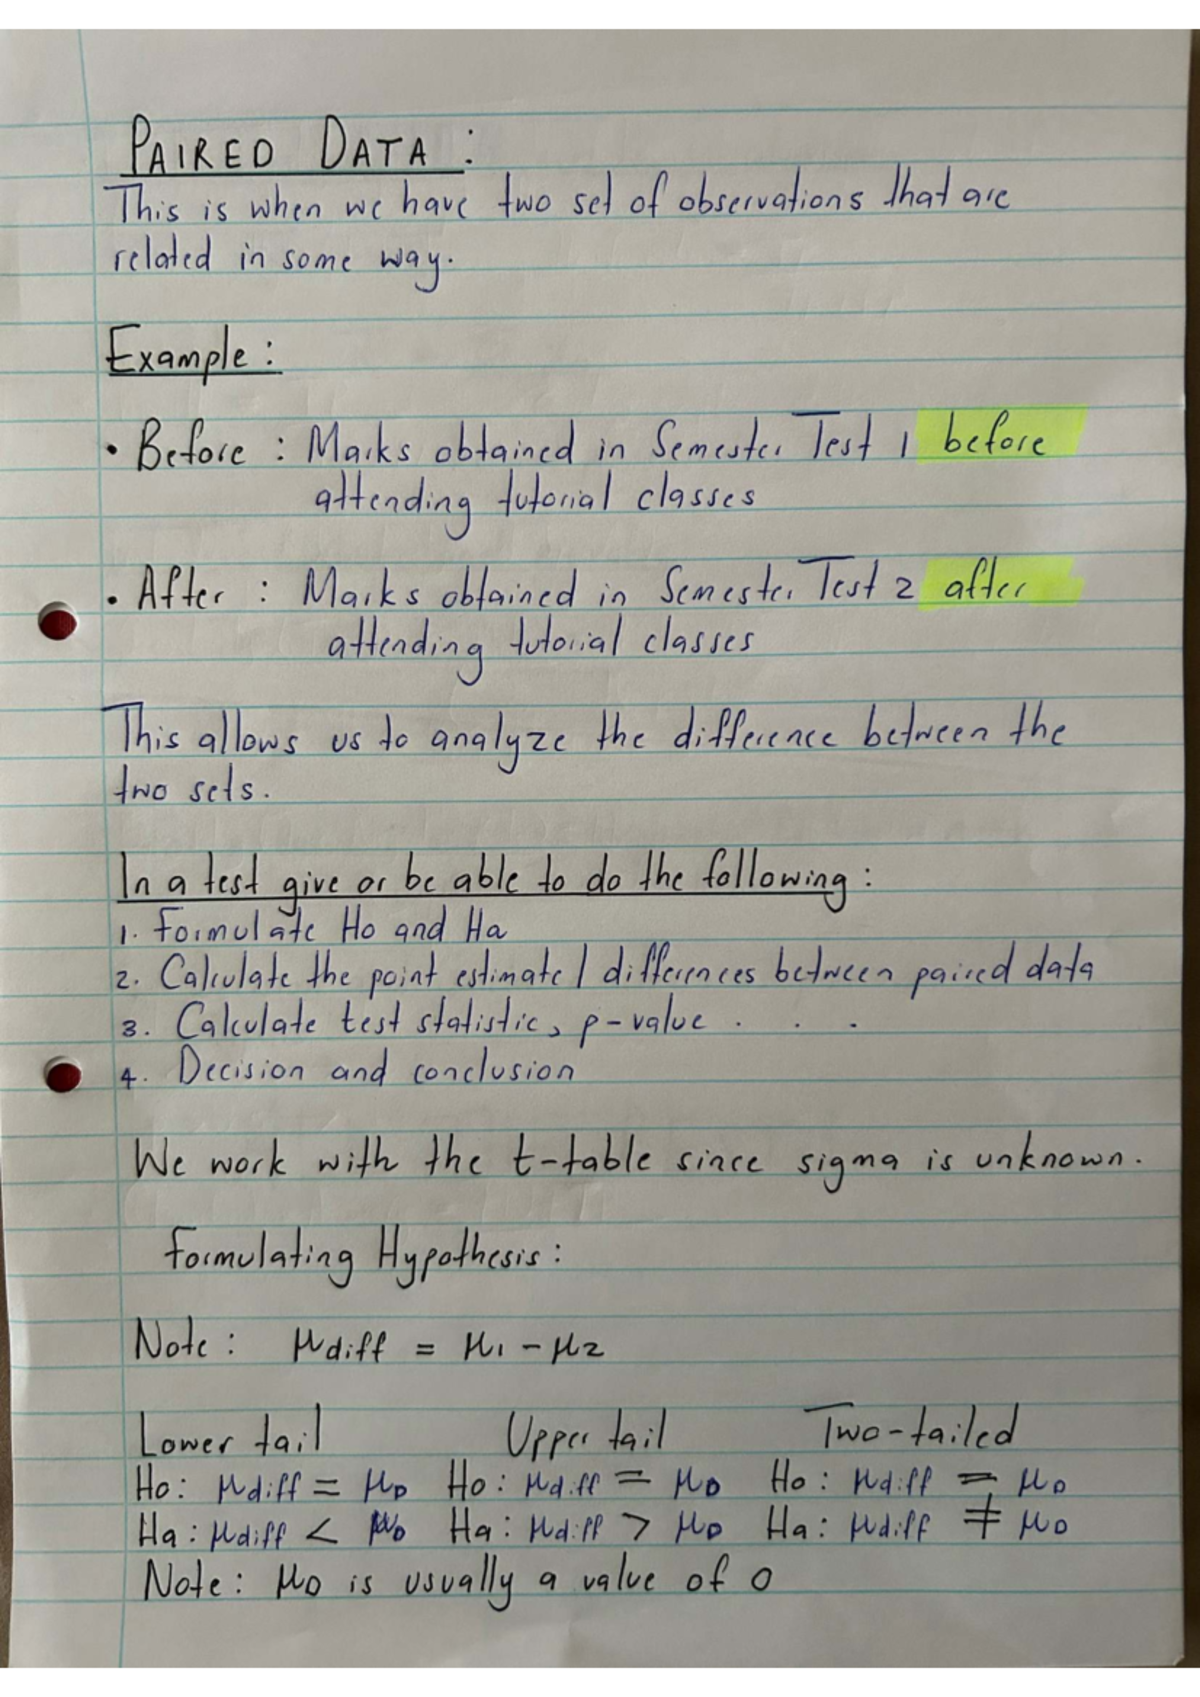 PAIRED DATA :
This is when we have two set of observations that are
related in some way.
Example :
• Before : Marks obtained in Semester Test 1 before
attending tutorial classes
• After : Marks obtained in Semester Test 2 after
attending tutorial classes
This allows us to analyze the difference between the
two sets.
In a test give or be able to do the following :
1. Formulate Ho and Ha
2. Calculate the point estimate / differences between paired data
3. Calculate test statistic, p-value . . .
4. Decision and conclusion
We work with the t-table since sigma is unknown.
Formulating Hypothesis :
Note : μdiff = μ1 - μ2
Lower tail Upper tail Two-tailed
Ho : μdiff = μD Ho : μdiff = μD Ho : μdiff = μD
Ha : μdiff < μD Ha : μdiff > μD Ha : μdiff ≠ μD
Note : μD is usually a value of 0